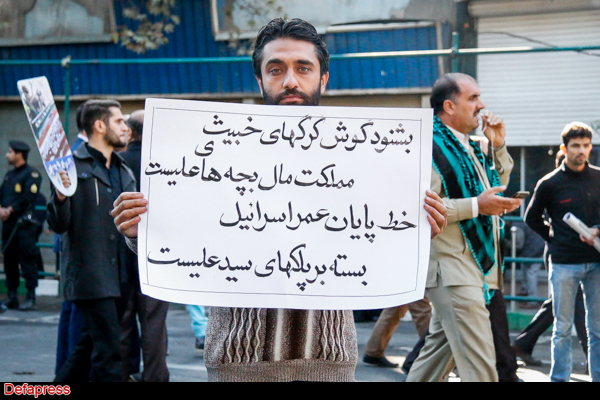 بشنود گوش گرگهای خبیث
مملکت مال بچه های علیست
خط پایان عمر اسرائیل
بسته بر پلاکهای سید علیست
Defapress